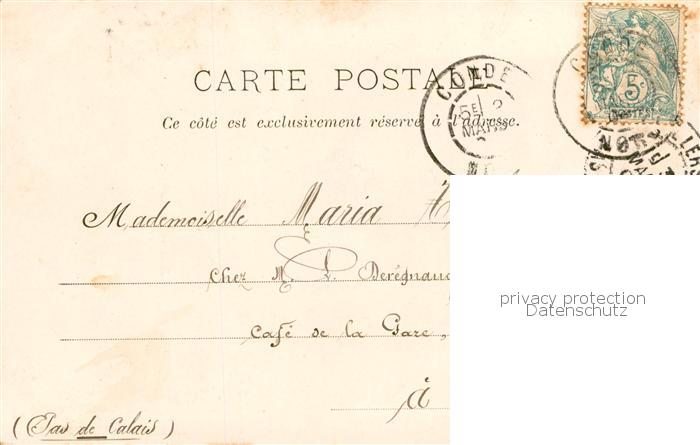 CARTE POSTALE
Ce côté est exclusivement réservé à l'adresse.
CONDE
5E
MARS
NOR
5c
POSTES
Mademoiselle Maria
Chez M. L. Derégnauc
Café de la Gare,
à
(Pas de Calais)
privacy protection
Datenschutz